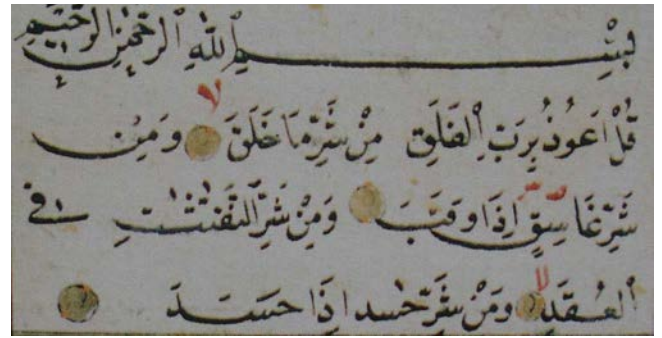 بِسْمِ اللّٰهِ الرَّحْمٰنِ الرَّحٖيمِ
قُلْ اَعُوذُ بِرَبِّ الْفَلَقِ مِنْ شَرِّ مَا خَلَقَ لا وَمِنْ
شَرِّ غَاسِقٍ اِذَا وَقَبَ وَمِنْ شَرِّ النَّفّٰثٰتِ فِى
الْعُقَدِ لا وَمِنْ شَرِّ حَسد اِذَا حَسَدَ